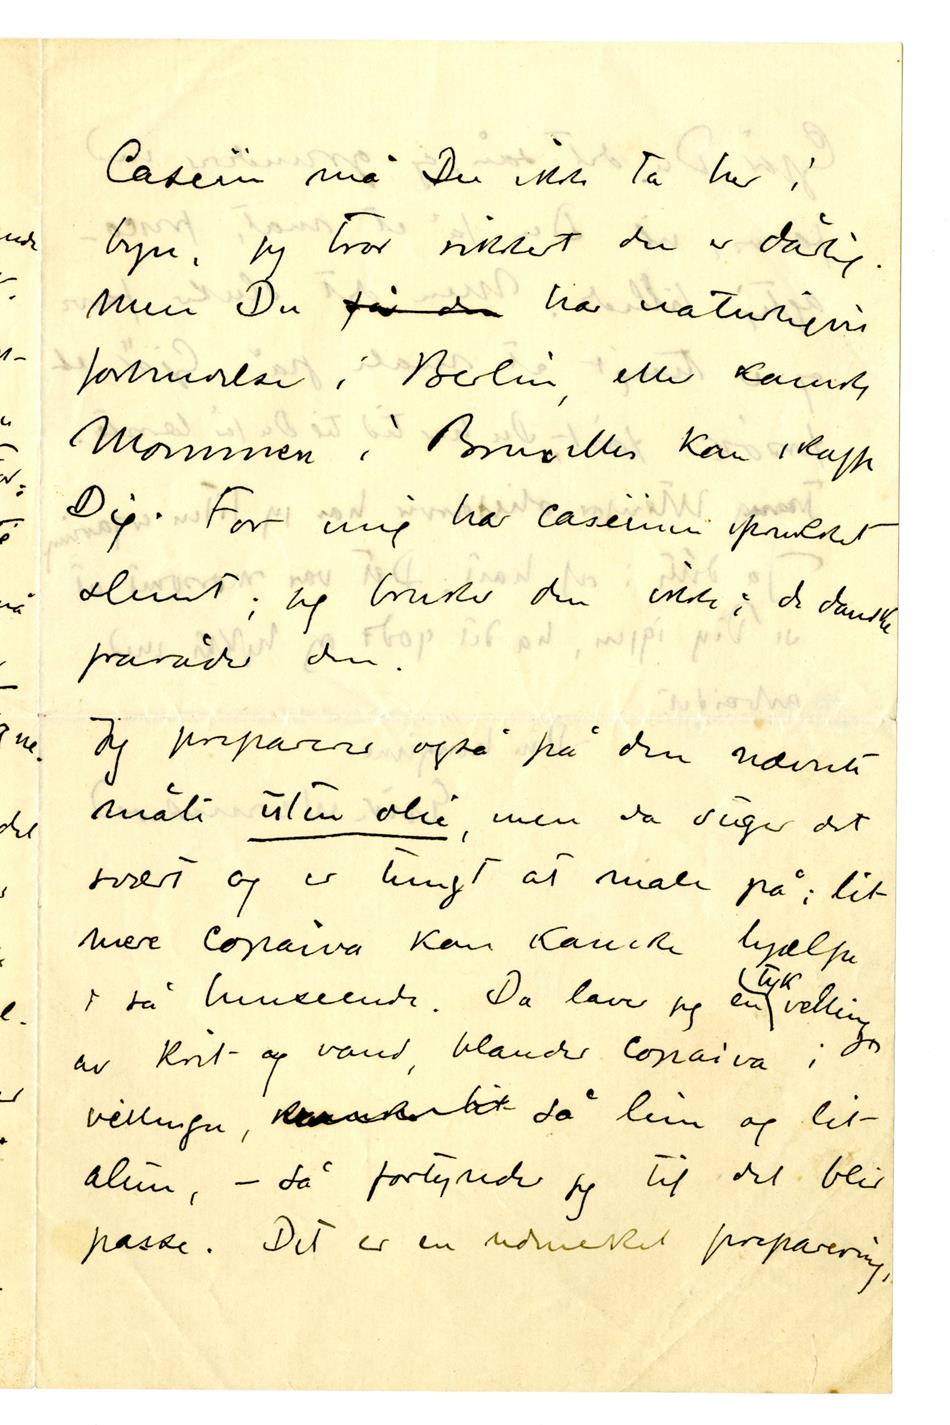 Caseïn må Du ikke ta her i
byen, jeg tror sikkert den er dårlig.
Men Du får den har naturligvis
forbindelse i Berlin, eller kanske
Mommen i Bruxelles kan skaffe
Dig. For mig har caseïnen sprukket
slemt; jeg bruker den ikke; de danske
fraråder den.
Jeg preparerer også på den nævnte
måte uten olie, men da suger det
svært og er tungt at male på; lit
mere copaiva kan kanske hjælpe
i så henseende. Da laver jeg en tyk velling
av krit og vand, blander copaiva i
vellingen, kanske lit så lim og lit
alun, – så fortynder jeg til det blir
passe. Det er en udmerket preparering,